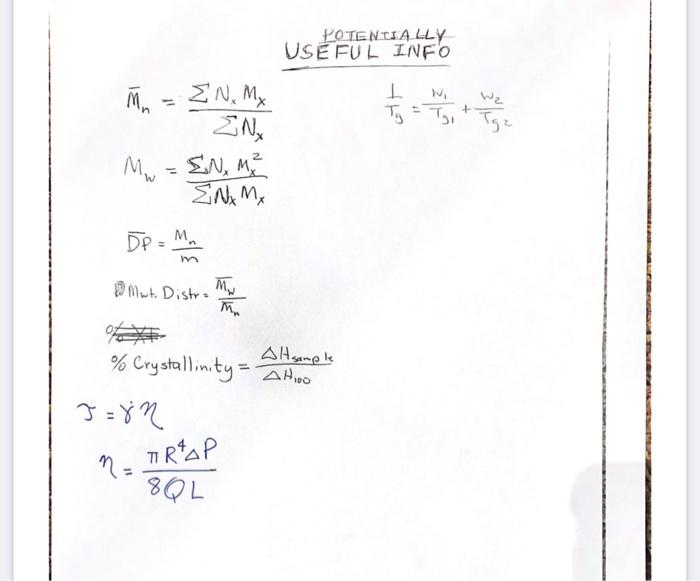 POTENTIALLY
USEFUL INFO
M̄n = ΣNx Mx / ΣNx
1/Tg = W1/Tg1 + W2/Tg2
Mw = ΣNx Mx² / ΣNx Mx
D̄P̄ = Mn / m
Mwt. Distr = M̄w / M̄n
% Crystallinity = ΔHsample / ΔH100
τ = γ̇ η
η = πR⁴ΔP / 8QL